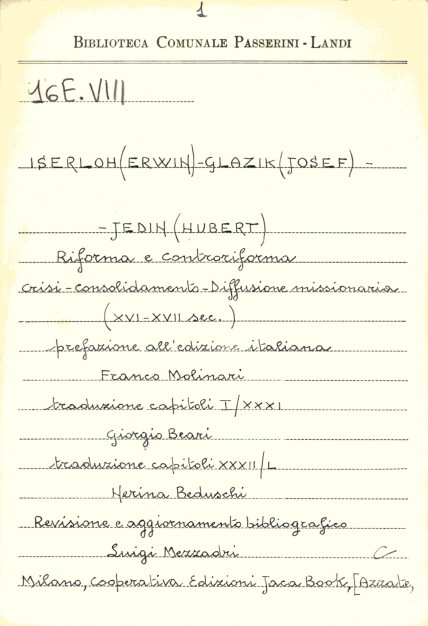 1
BIBLIOTECA COMUNALE PASSERINI - LANDI
16E.VIII
ISERLOH (ERWIN) - GLAZIK (JOSEF) -
- JEDIN (HUBERT)
Riforma e controriforma
crisi - consolidamento - Diffusione missionaria
(XVI - XVII sec.)
prefazione all'edizione italiana
Franco Molinari
traduzione capitoli I/XXXI
Giorgio Beari
traduzione capitoli XXXII/L
Nerina Beduschi
Revisione e aggiornamento bibliografico
Luigi Mezzadri C
Milano, Cooperativa Edizioni Jaca Book, [Azzate,